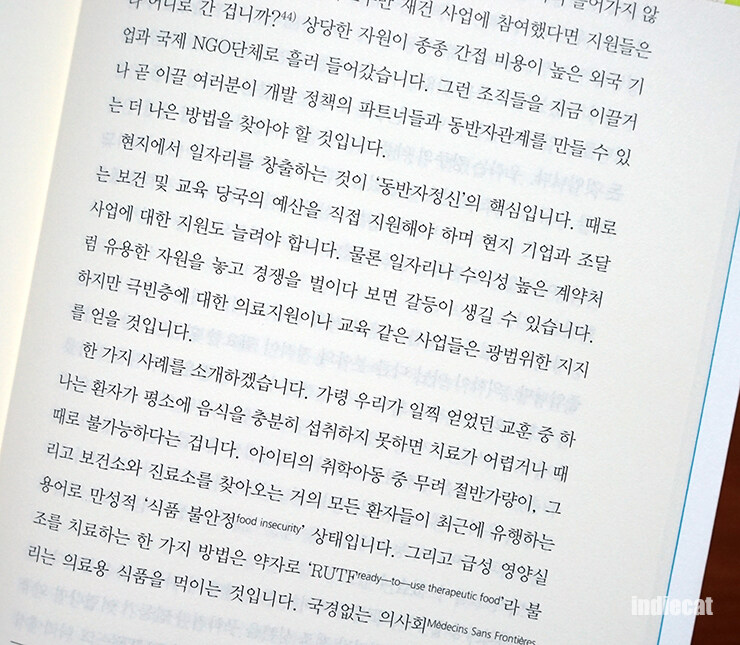 재건 사업에 참여했다면 지원들은
어디로 간 겁니까?44) 상당한 자원이 종종 간접 비용이 높은 외국 기
업과 국제 NGO단체로 흘러 들어갔습니다. 그런 조직들을 지금 이끌거
나 곧 이끌 여러분이 개발 정책의 파트너들과 동반자관계를 만들 수 있
는 더 나은 방법을 찾아야 할 것입니다.
현지에서 일자리를 창출하는 것이 ‘동반자정신’의 핵심입니다. 때로
는 보건 및 교육 당국의 예산을 직접 지원해야 하며 현지 기업과 조달
사업에 대한 지원도 늘려야 합니다. 물론 일자리나 수익성 높은 계약처
럼 유용한 자원을 놓고 경쟁을 벌이다 보면 갈등이 생길 수 있습니다.
하지만 극빈층에 대한 의료지원이나 교육 같은 사업들은 광범위한 지지
를 얻을 것입니다.
한 가지 사례를 소개하겠습니다. 가령 우리가 일찍 얻었던 교훈 중 하
나는 환자가 평소에 음식을 충분히 섭취하지 못하면 치료가 어렵거나 때
때로 불가능하다는 겁니다. 아이티의 취학아동 중 무려 절반가량이, 그
리고 보건소와 진료소를 찾아오는 거의 모든 환자들이 최근에 유행하는
용어로 만성적 ‘식품 불안정food insecurity’ 상태입니다. 그리고 급성 영양실
조를 치료하는 한 가지 방법은 약자로 ‘RUTFready—to—use therapeutic food’라 불
리는 의료용 식품을 먹이는 것입니다. 국경없는 의사회Médecins Sans Frontières
indiecat